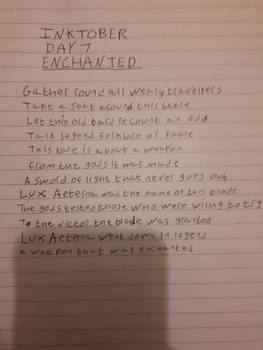 INKTOBER
DAY 7
ENCHANTED
Gather round all weary travellers
Take a seat around this table
Let this old bard recount an odd
Tale legend folklore or fable
This tale is about a weapon
From the gods it was made
A sword of light that never goes out
Lux Aeterna was the name of this blade
The gods tested those who were willing to try
To the victor the blade was granted
Lux Aeterna went down in legend
a weapon that was enchanted